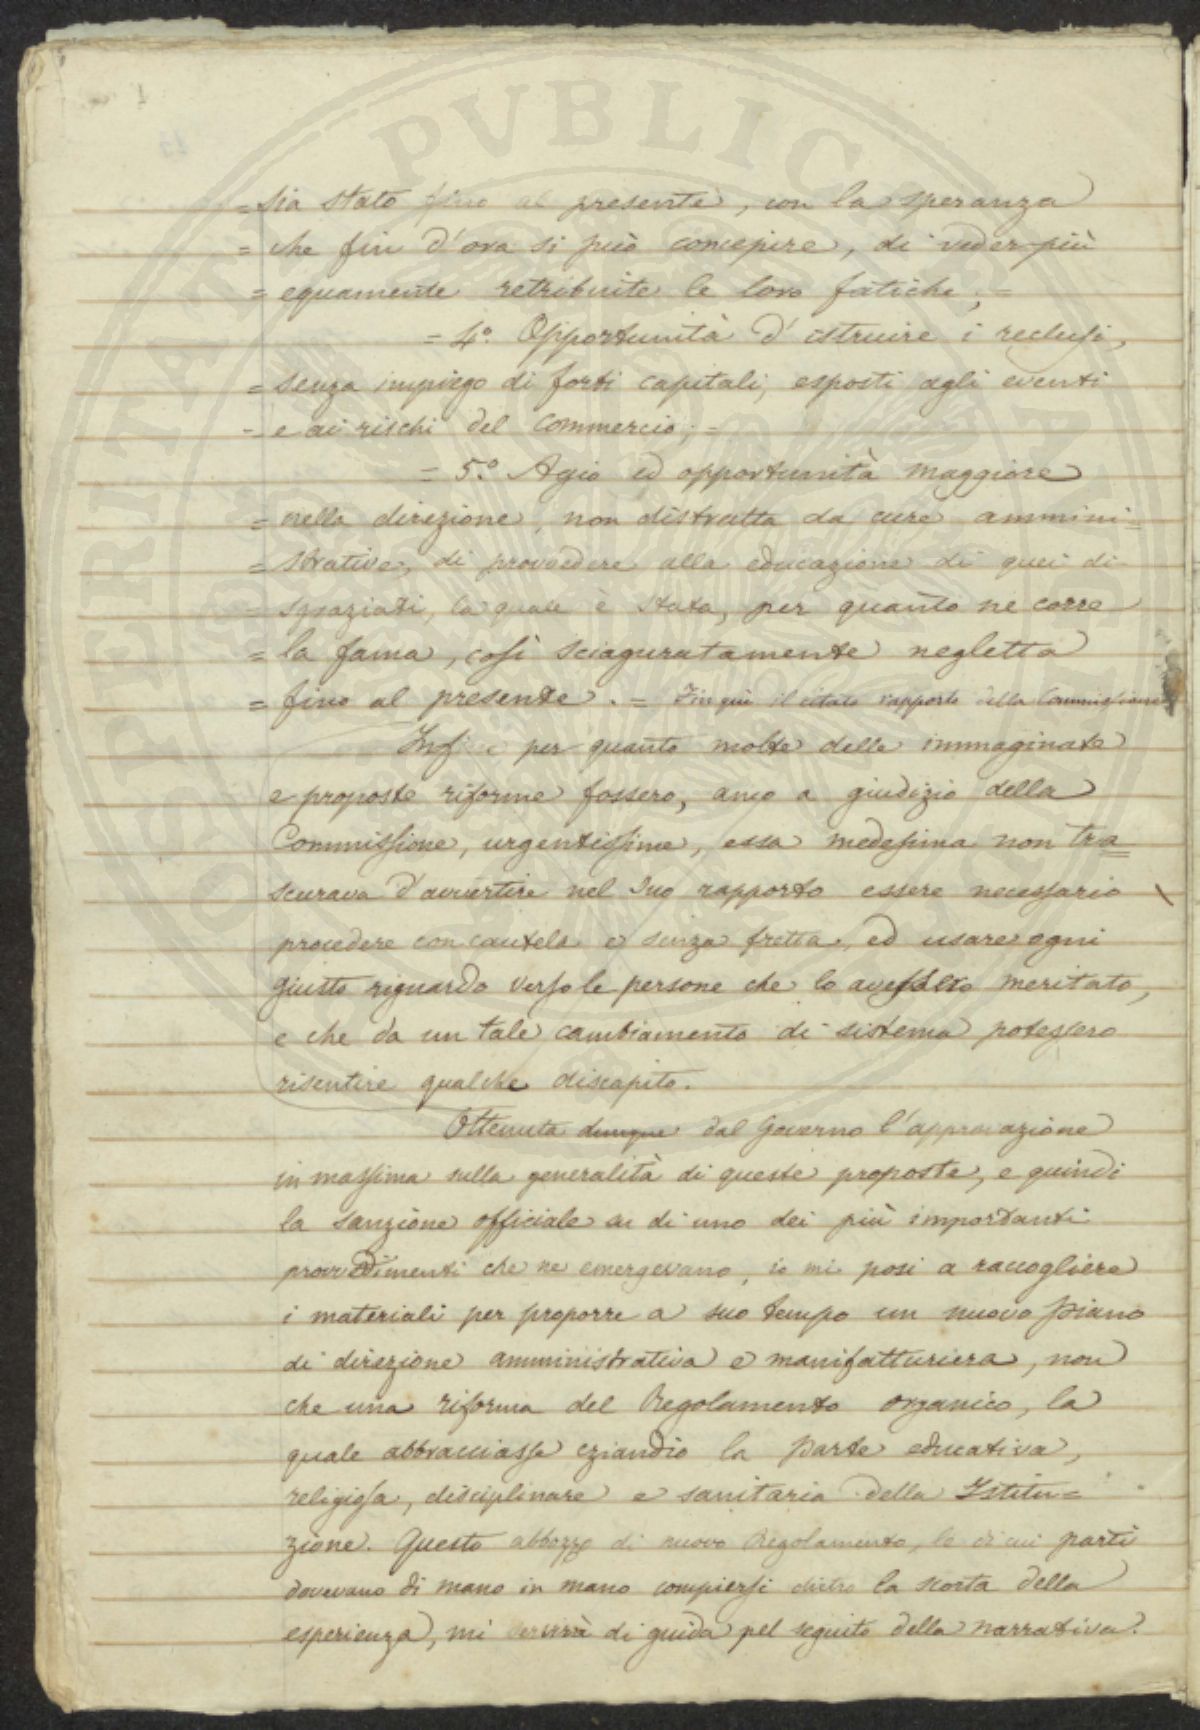 = sia stato fino al presente, con la speranza
= che fin d'ora si può concepire, di veder più
= equamente retribuite le loro fatiche; =
= 4.º Opportunità d'istruire i reclusi,
= senza impiego di forti capitali, esposti agli eventi
= e ai rischi del commercio; =
= 5.º Agio ed opportunità maggiore
= nella direzione, non distratta da cure ammini=
= strative, di provvedere alla educazione di quei di-
= sgraziati, la quale è stata, per quanto ne corre
= la fama, così sciaguratamente negletta
= fino al presente. = Fin qui il citato rapporto della Commissione
per quanto molte delle immaginate
e proposte riforme fossero, anco a giudizio della
Commissione, urgentissime, essa medesima non tra=
scurava d'avvertire nel suo rapporto essere necessario
procedere con cautela e senza fretta, ed usare ogni
giusto riguardo verso le persone che lo avessero meritato,
e che da un tale cambiamento di sistema potessero
risentire qualche discapito.
Ottenuta dunque dal Governo l'approvazione
in massima sulla generalità di queste proposte, e quindi
la sanzione officiale di uno dei più importanti
provvedimenti che ne emergevano, io mi posi a raccogliere
i materiali per proporre a suo tempo un nuovo piano
di direzione amministrativa e manifatturiera, non
che una riforma del Regolamento organico, la
quale abbracciasse eziandio la parte educativa,
religiosa, disciplinare e sanitaria della Istitu=
zione. Questo abbozzo di nuovo Regolamento, le di cui parti
dovevano di mano in mano compiersi dietro la scorta della
esperienza, mi servirà di guida pel seguito della narrativa.
PROSPERITATI PVBLICAE